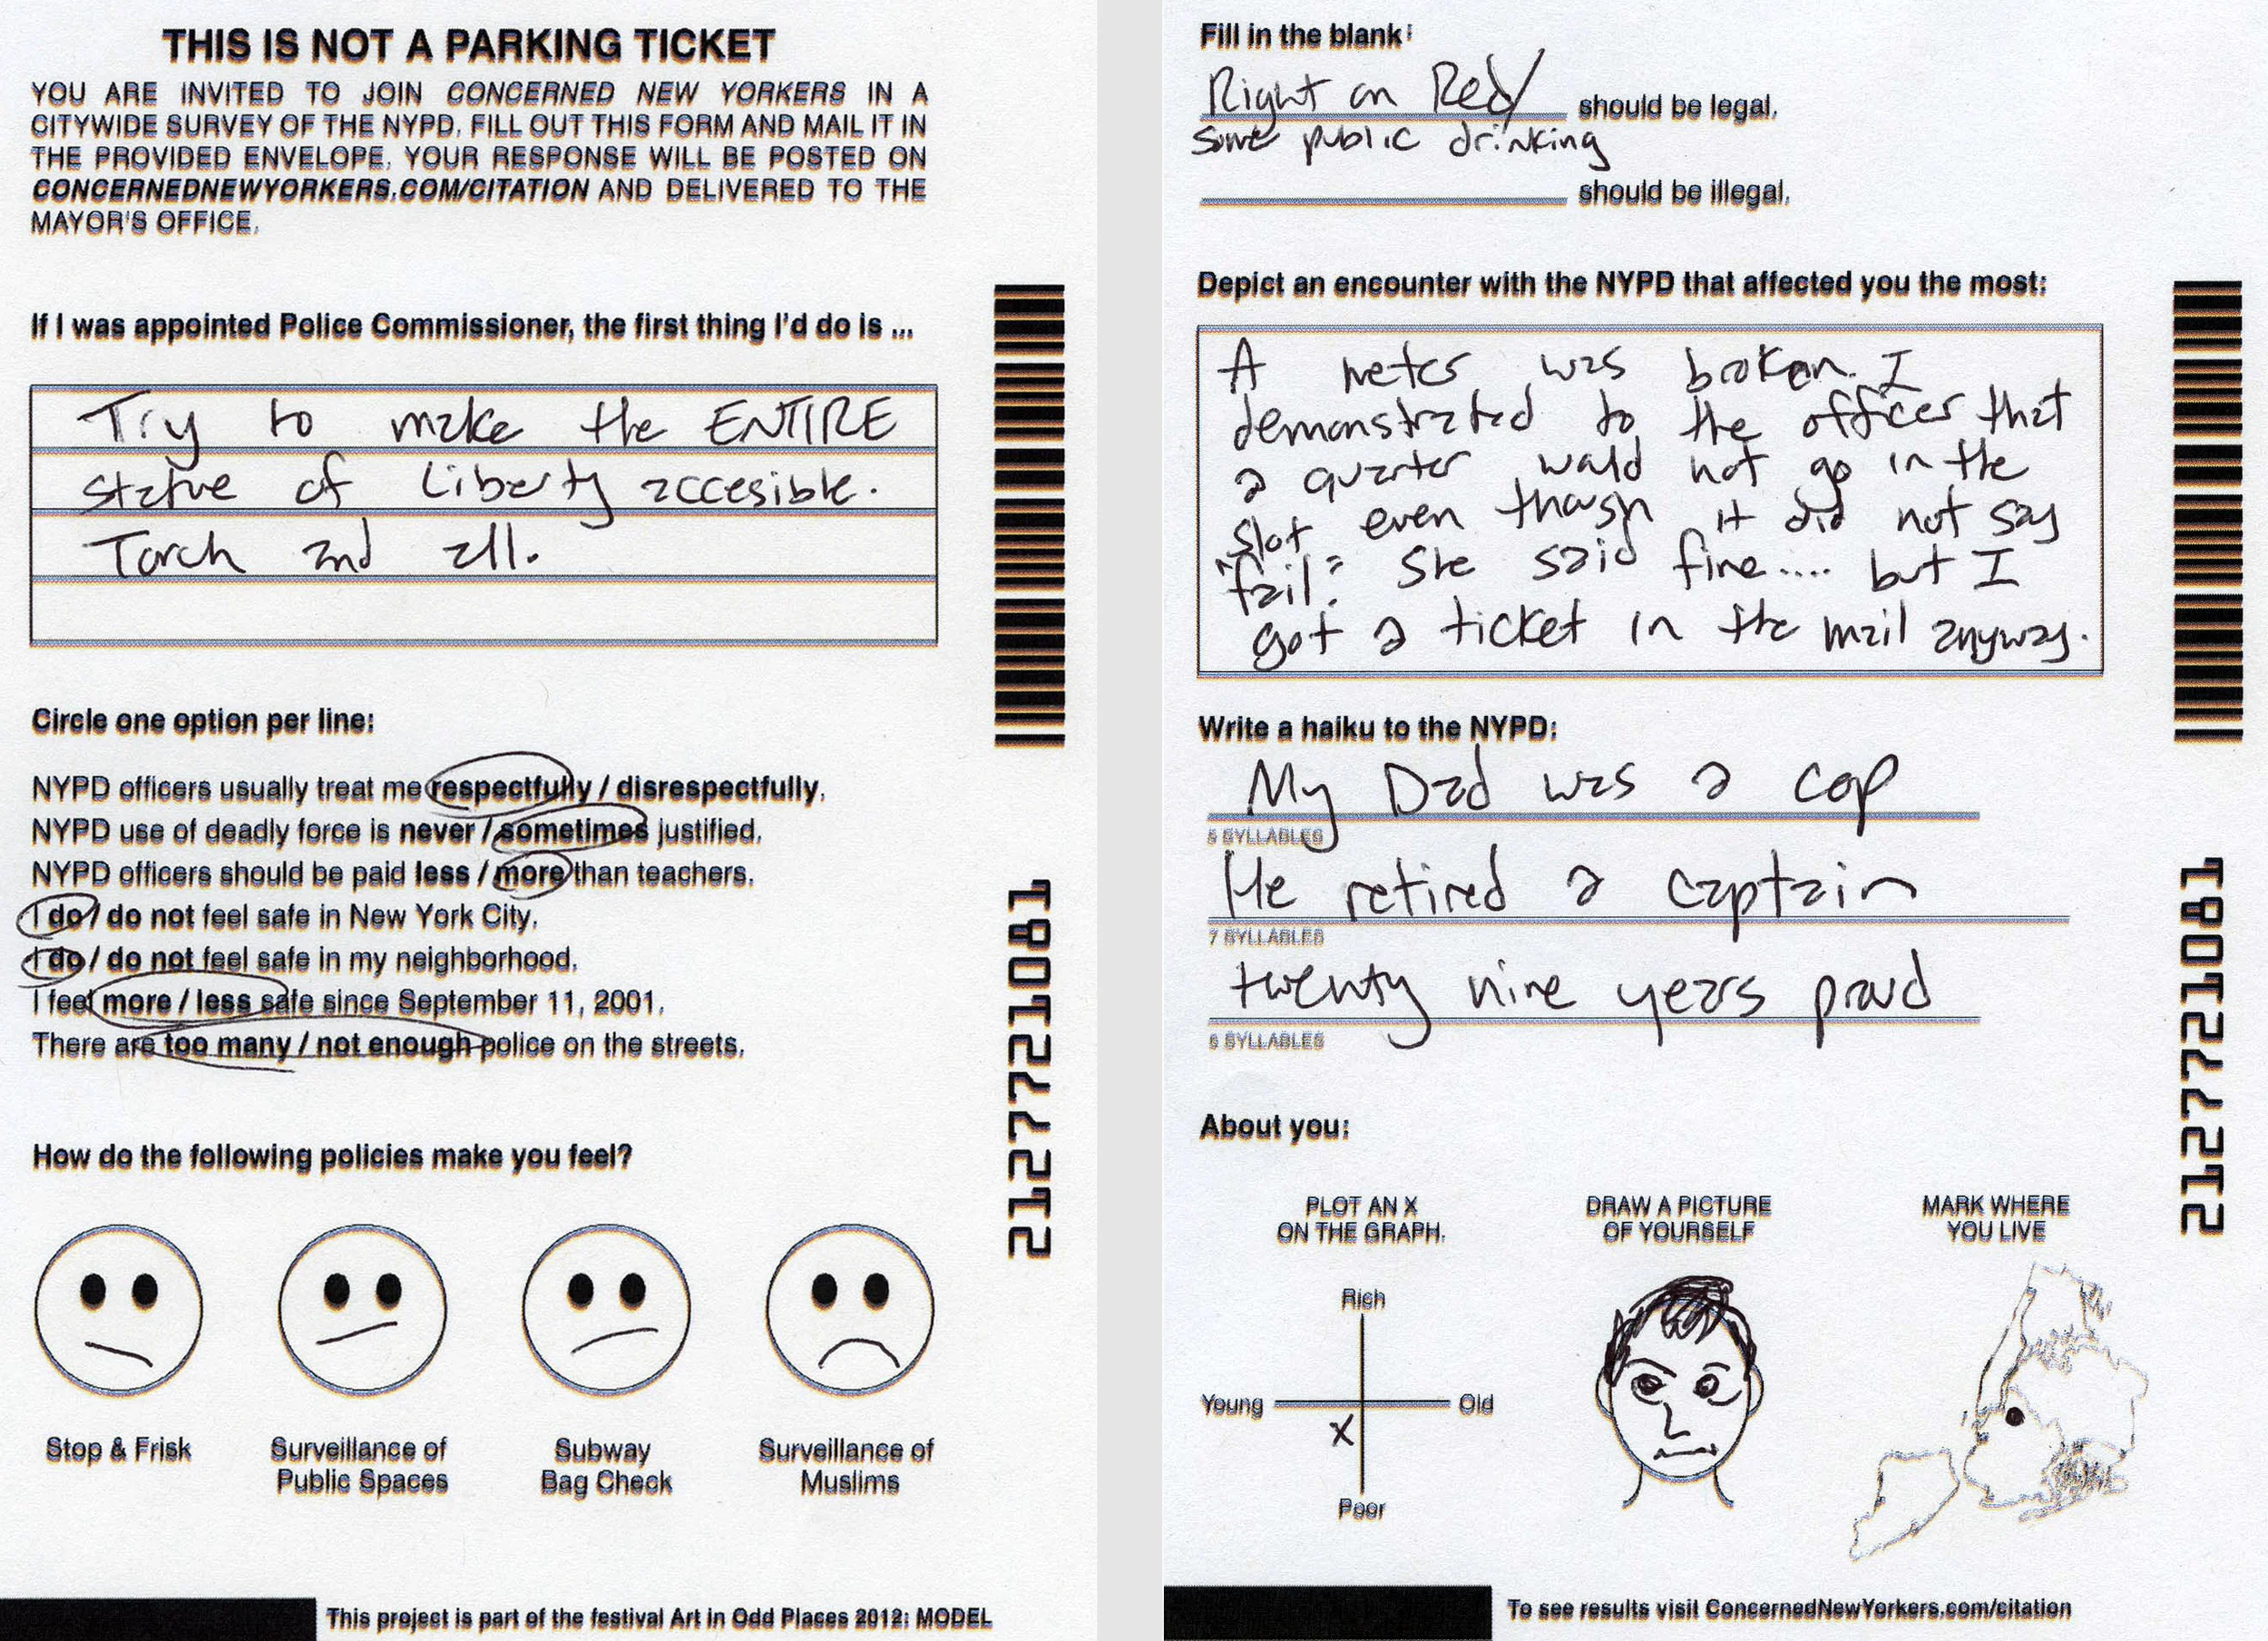 THIS IS NOT A PARKING TICKET
YOU ARE INVITED TO JOIN CONCERNED NEW YORKERS IN A
CITYWIDE SURVEY OF THE NYPD. FILL OUT THIS FORM AND MAIL IT IN
THE PROVIDED ENVELOPE. YOUR RESPONSE WILL BE POSTED ON
CONCERNEDNEWYORKERS.COM/CITATION AND DELIVERED TO THE
MAYOR'S OFFICE.
If I was appointed Police Commissioner, the first thing I'd do is ...
Try to make the ENTIRE
Statue of Liberty accesible.
Torch and all.
Circle one option per line:
NYPD officers usually treat me respectfully / disrespectfully.
NYPD use of deadly force is never / sometimes justified.
NYPD officers should be paid less / more than teachers.
I do / do not feel safe in New York City.
I do / do not feel safe in my neighborhood.
I feel more / less safe since September 11, 2001.
There are too many / not enough police on the streets.
How do the following policies make you feel?
Stop & Frisk
Surveillance of
Public Spaces
Subway
Bag Check
Surveillance of
Muslims
This project is part of the festival Art in Odd Places 2012: MODEL
2127721081
Fill in the blank:
Right on Red/ should be legal.
some public drinking
should be illegal.
Depict an encounter with the NYPD that affected you the most:
A meter was broken. I
demonstrated to the officer that
a quarter would not go in the
slot even though it did not say
"fail." She said fine.... but I
got a ticket in the mail anyway.
Write a haiku to the NYPD:
My Dad was a cop
5 SYLLABLES
He retired a captain
7 SYLLABLES
twenty nine years proud
5 SYLLABLES
About you:
PLOT AN X
ON THE GRAPH.
Rich
Young
Old
X
Poor
DRAW A PICTURE
OF YOURSELF
MARK WHERE
YOU LIVE
2127721081
To see results visit ConcernedNewYorkers.com/citation